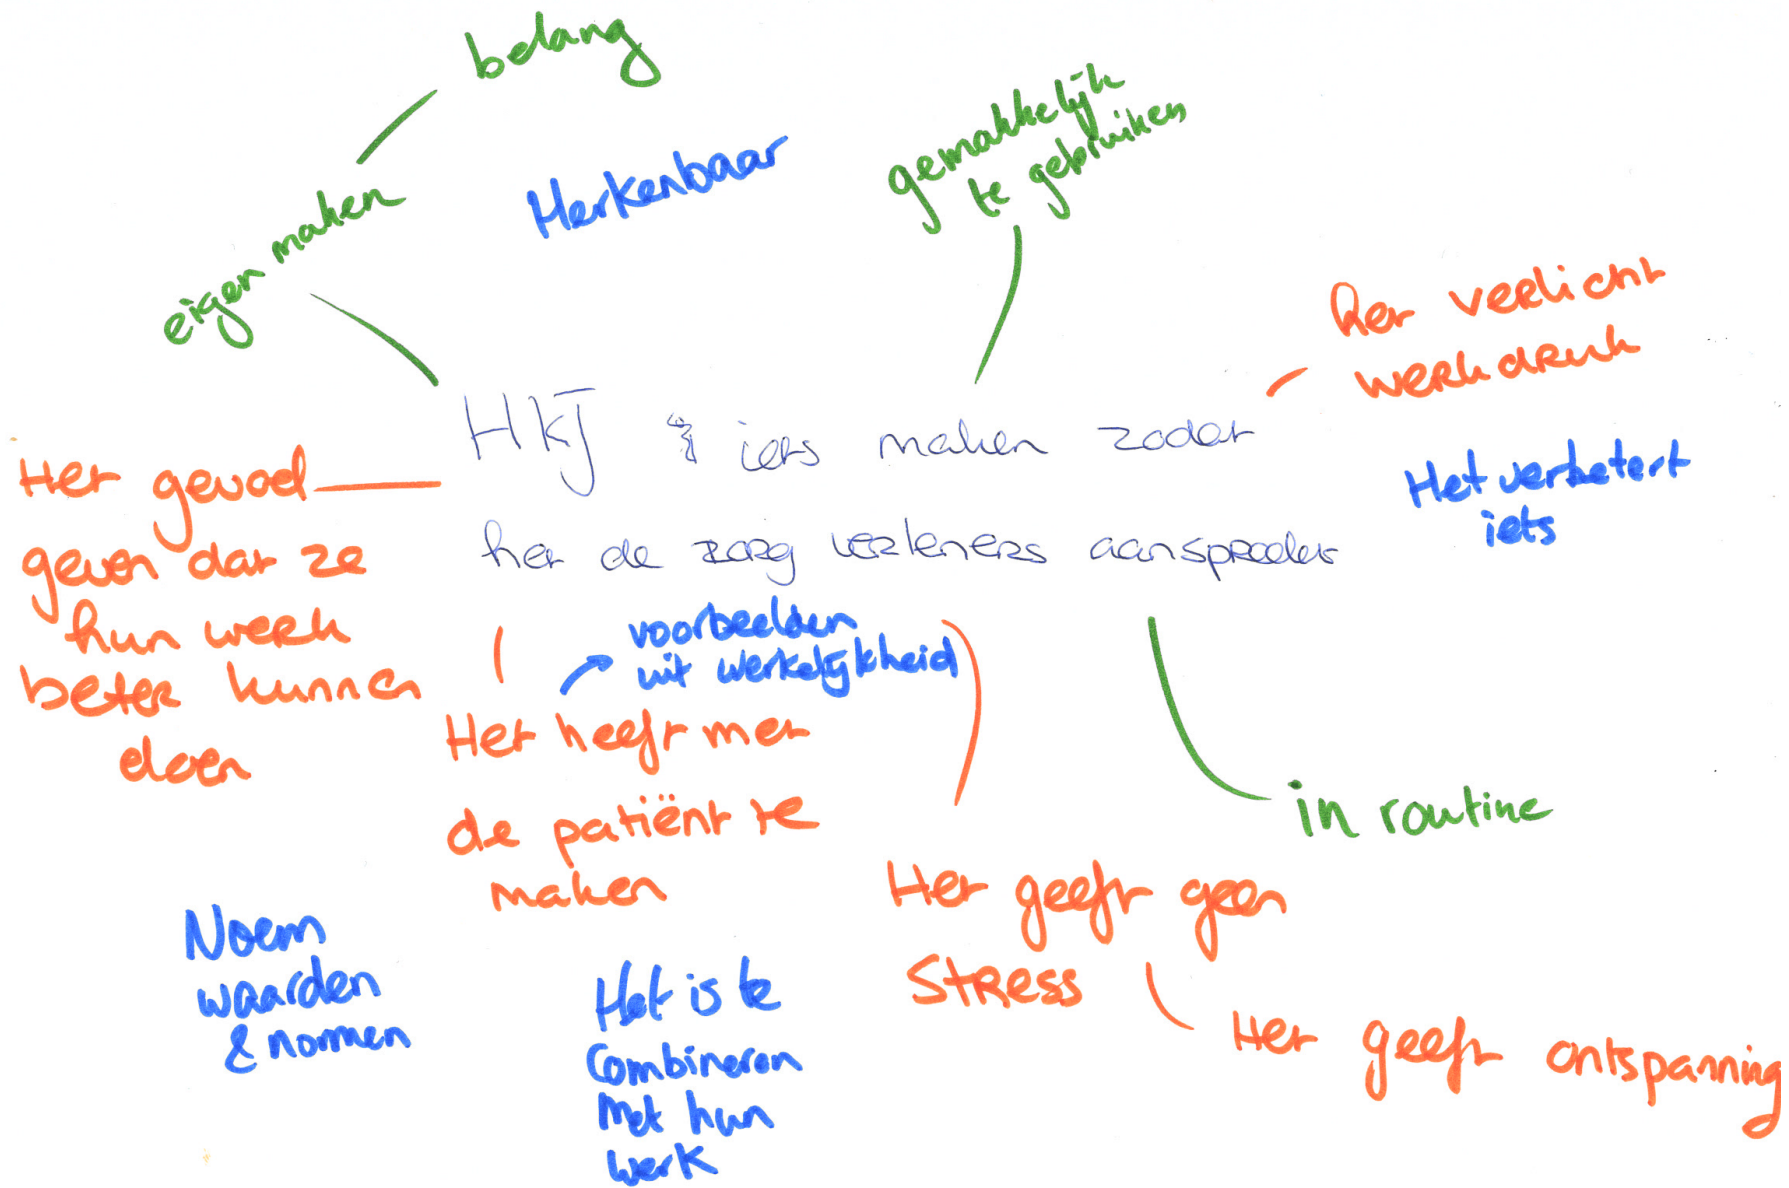 belang
Herkenbaar
gemakkelijk
te gebruiken
eigen maken
het verlicht
werkdruk
HKJ iets maken zodat
het de zorg verleners aanspreekt
Het verbetert
iets
Het gevoel
geven dat ze
hun werk
beter kunnen
doen
voorbeelden
uit werkelijkheid
Het heeft met
de patiënt te
maken
in routine
Het geeft geen
stress
Het geeft ontspanning
Noem
waarden
& normen
Het is te
combineren
met hun
werk